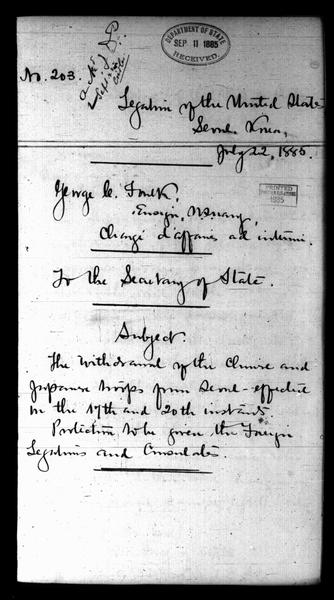 DEPARTMENT OF STATE
SEP 11 1885
RECEIVED
No. 203.
Legation of the United States
Seoul, Korea,
July 22, 1885.
George C. Foulk,
Ensign, U.S. Navy,
Chargé d'affaires ad interim.
To the Secretary of State.
Subject.
The withdrawal of the Chinese and
Japanese troops from Seoul - effected
on the 17th and 20th instants.
Protection to be given the Foreign
Legations and Consulates.